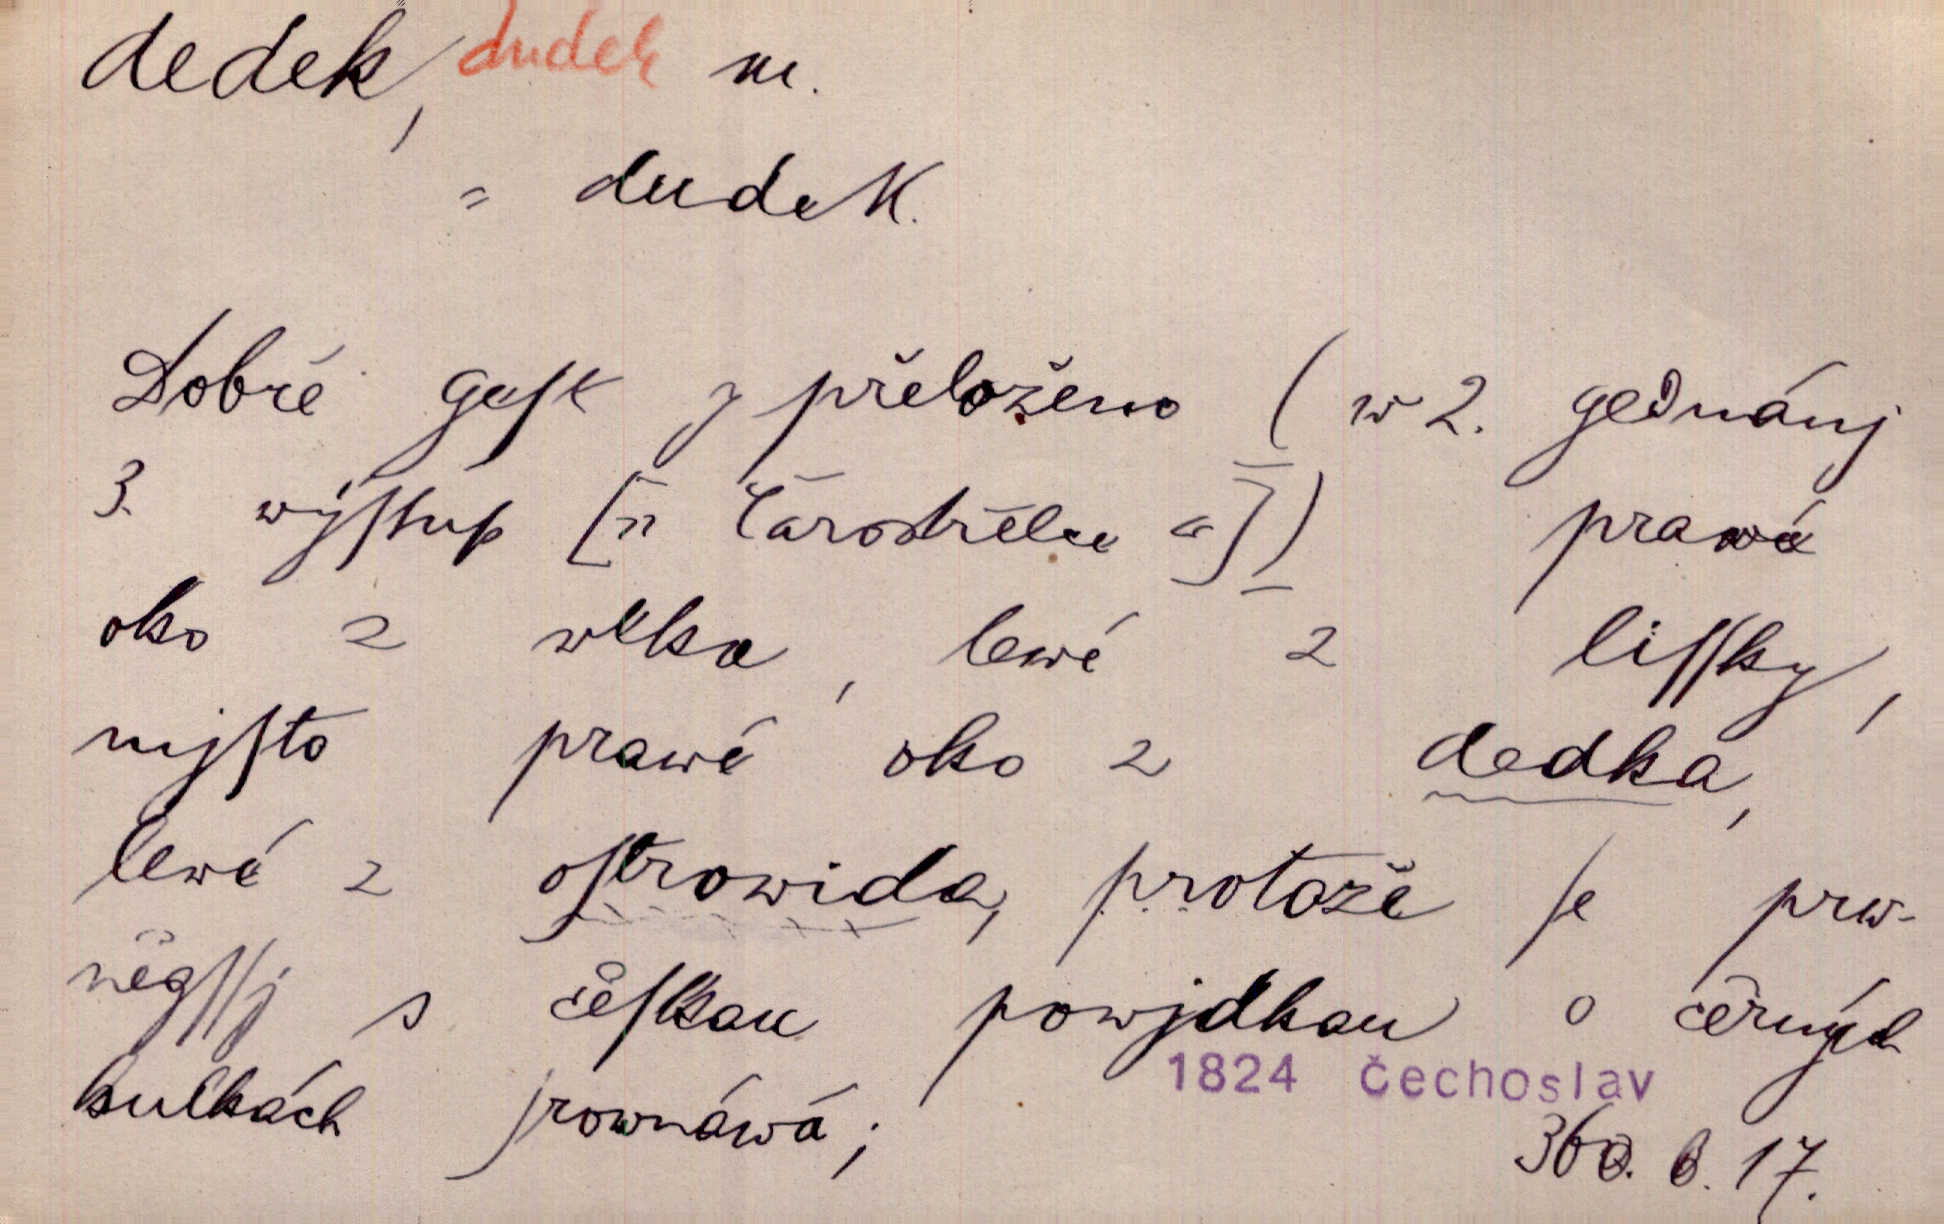 dedek, dudek m.
= dudek.
Dobré gest y přeloženo (w 2. gednánj
3. weyſtup [„Čarostřelce“]) prawé
oko z wlka, lewé z liſſky,
mjſto prawé oko z dedka,
lewé z oſtrowida, protože ſe prw-
něgſſj s čeſkau powjdkau o černých
kulkách ſrownáwá;
1824 Čechoslav
360. 6. 17.